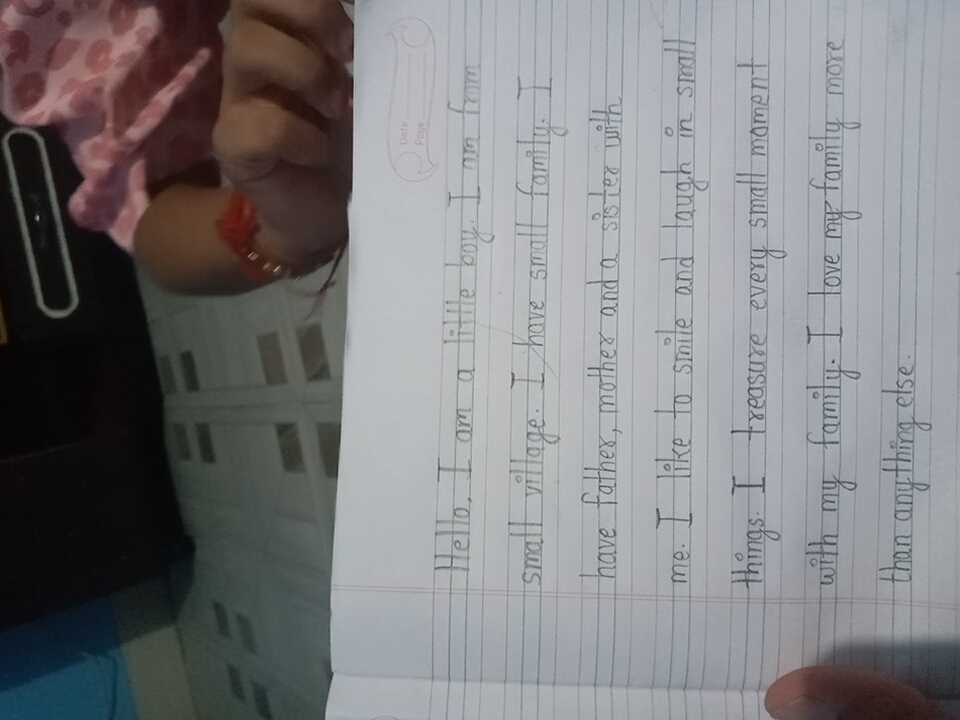 Date
Page
Hello, I am a little boy. I am from
small village. I have small family. I
have father, mother and a sister with
me. I like to smile and laugh in small
things. I treasure every small moment
with my family. I love my family more
than anything else.